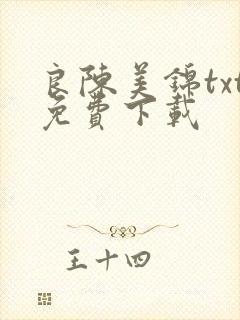 良陈美锦txt
免費下載
王十四